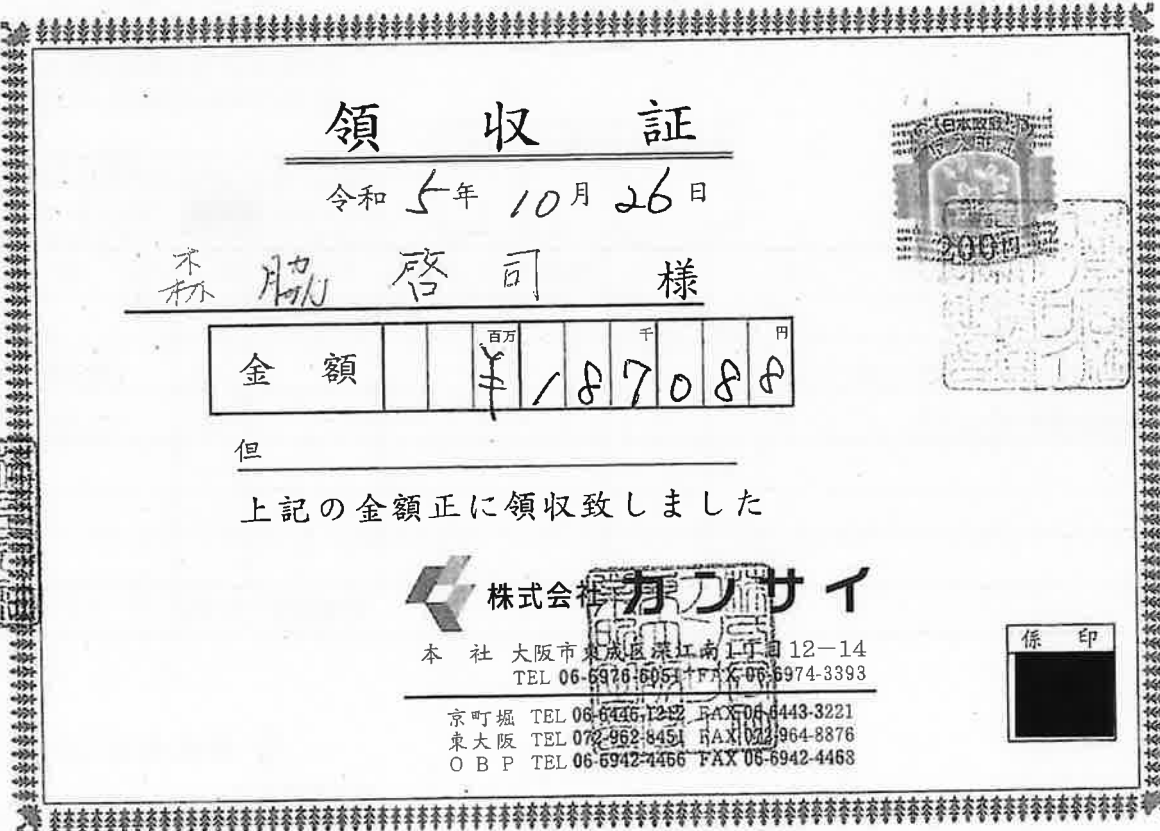 領収証
令和5年10月26日
森脇啓司 様
金額 百万 千 円
¥187088
但
上記の金額正に領収致しました
株式会社カンサイ
本社 大阪市東成区深江南1丁目12-14
TEL 06-6976-6051 FAX 06-6974-3393
京町堀 TEL 06-6446-1212 FAX 06-6443-3221
東大阪 TEL 072-962-8451 FAX 072-964-8876
OBP TEL 06-6942-4466 FAX 06-6942-4468
係印
日本政府
収入印紙
200円